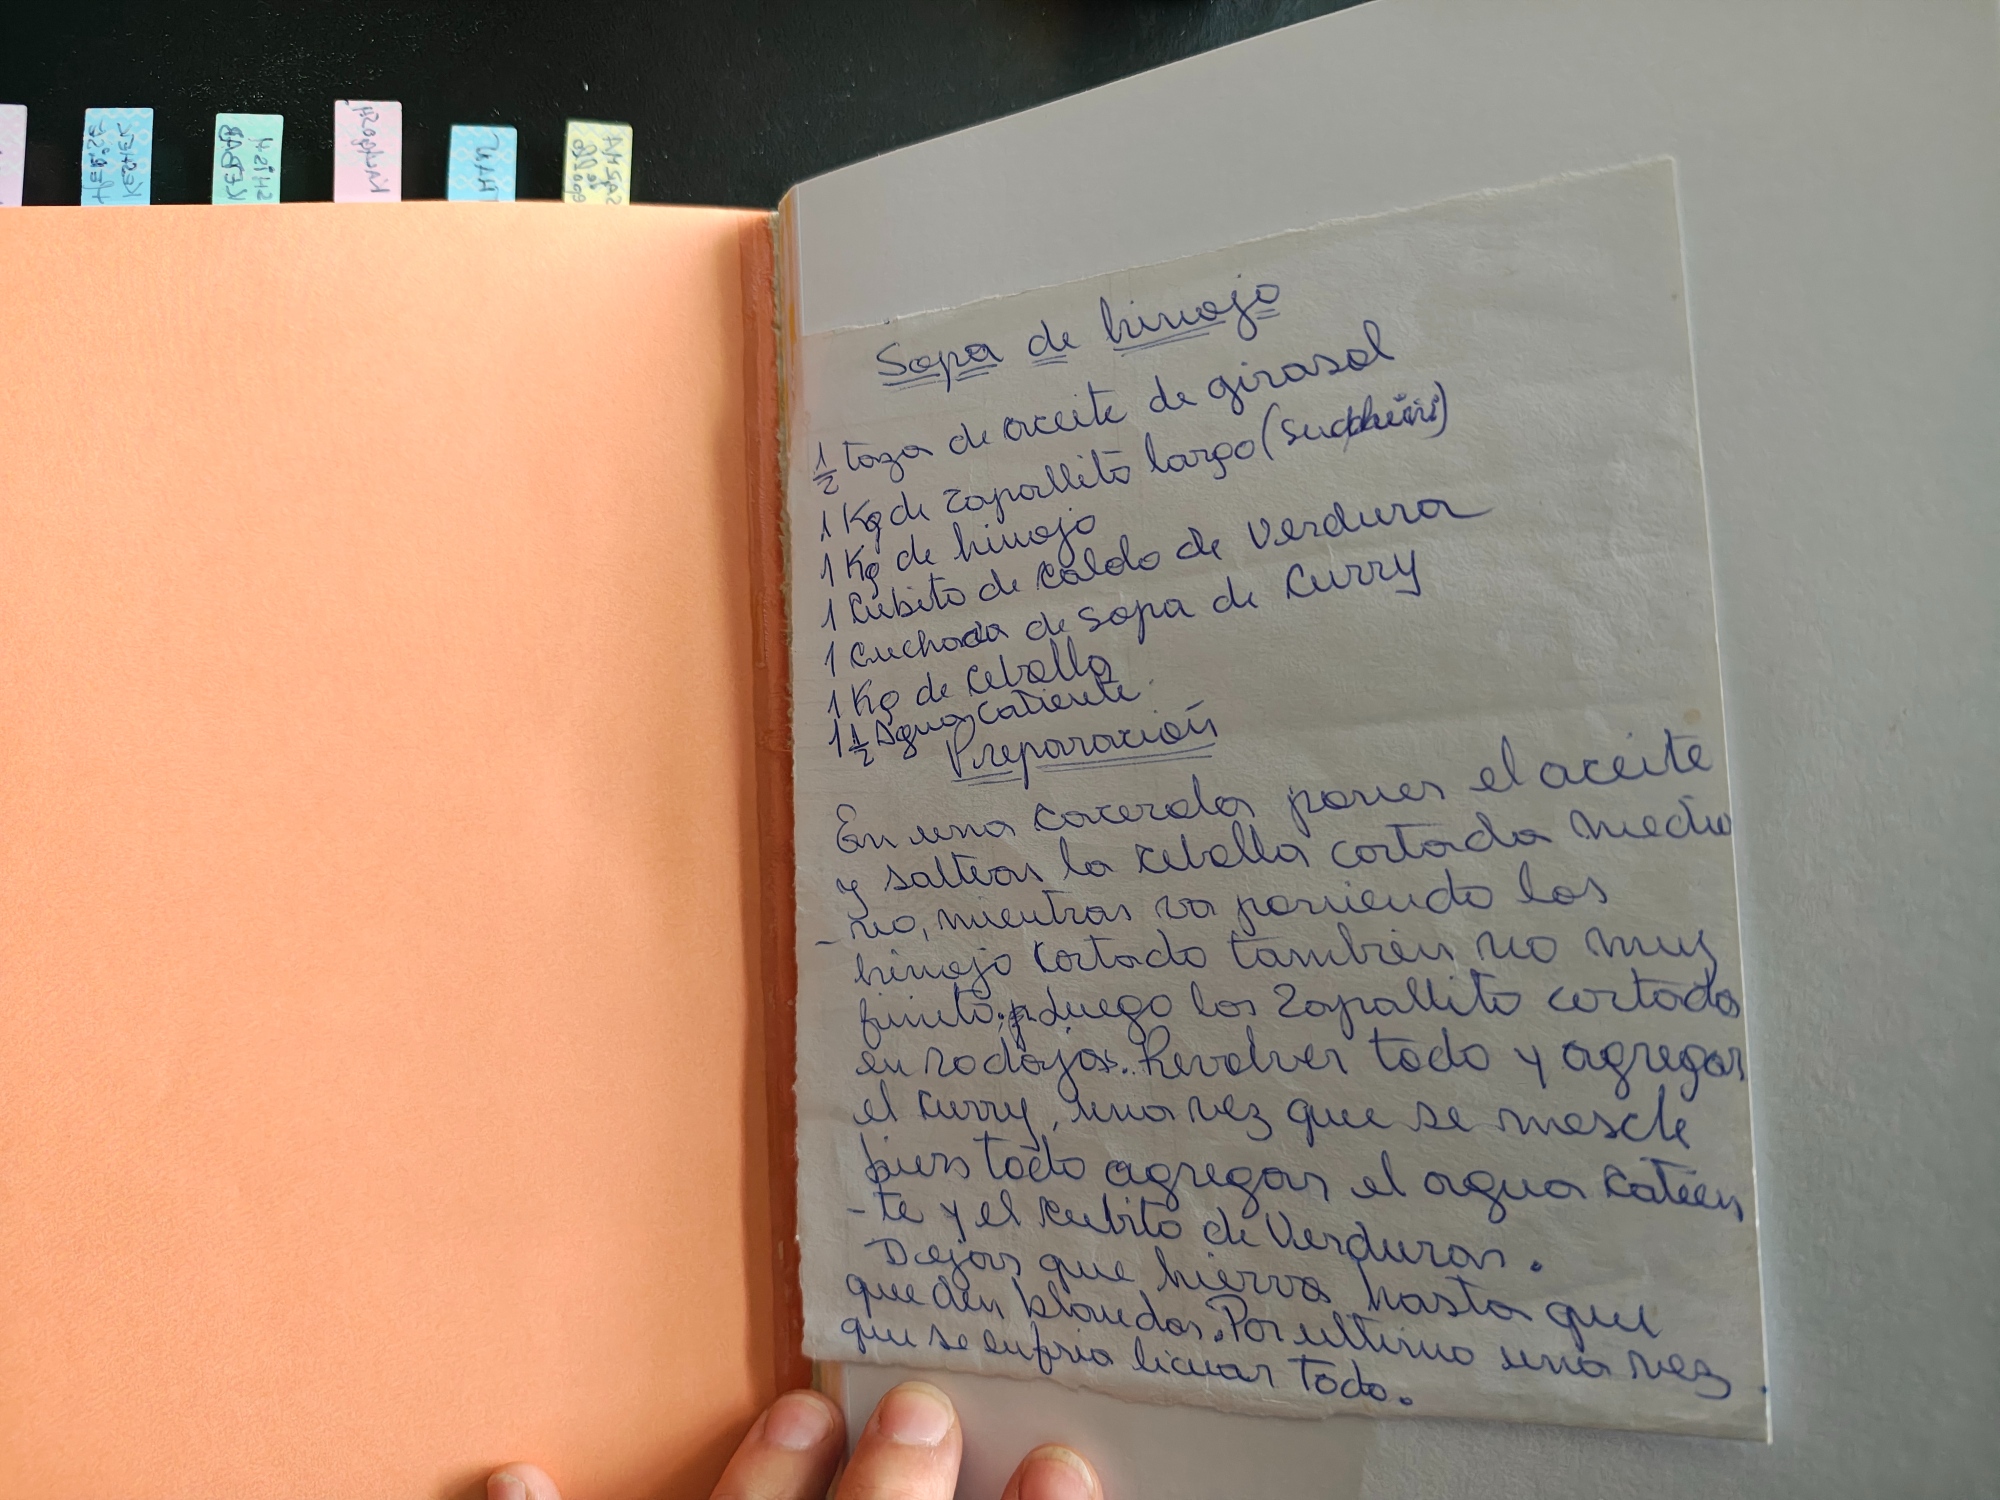 Sopa de hinojo
1/2 taza de aceite de girasol
1 Kg de zapallito largo (sucthini)
1 Kg de hinojo
1 Cubito de Caldo de Verdura
1 Cucharada de Sopa de Curry
1 Kg de Cebolla
1 1/2 Agua Catiente
Preparación
En una Cacerola poner el aceite
y saltear la cebolla cortada media
-no, mientras va poniendo los
hinojo Cortado también no muy
finito, luego los zapallito cortado
en rodajas. Revolver todo y agregar
el curry, una vez que se mescle
bien todo agregar el agua Catien
-te y el Cubito de Verduras.
Dejar que hierva hasta que
queden blandas. Por ultimo una vez
que se enfria licuar todo.